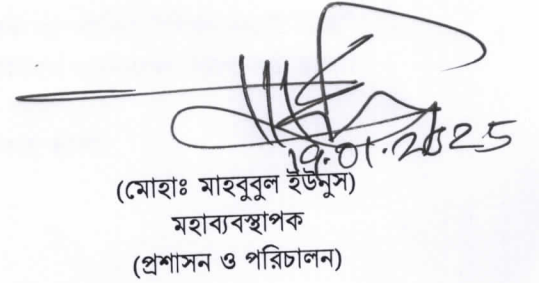 19.01.2025
(মোহাঃ মাহবুবুল ইউনুস)
মহাব্যবস্থাপক
(প্রশাসন ও পরিচালন)